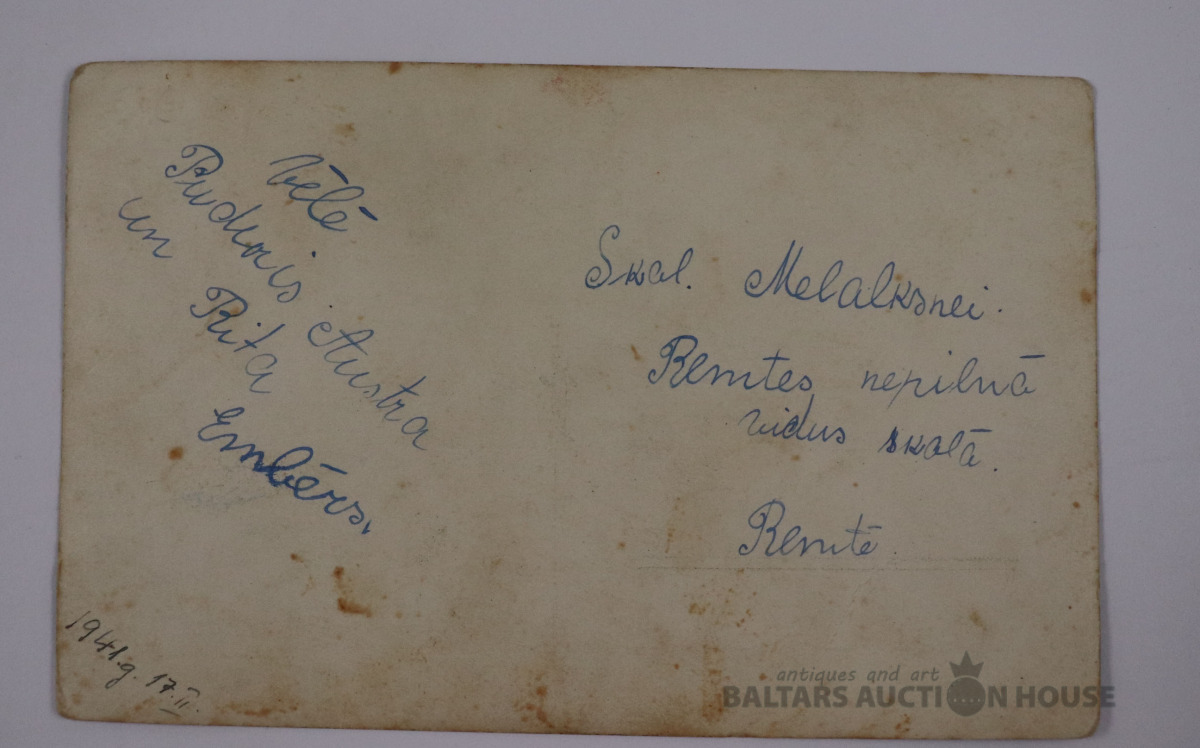 Vēlē
Austra
un Rita
Embērs.
1941.g. 17.II.
Skol. Melalksnei.
nepilnā
vidus skolā.
antiques and art
BALTARS AUCTION HOUSE